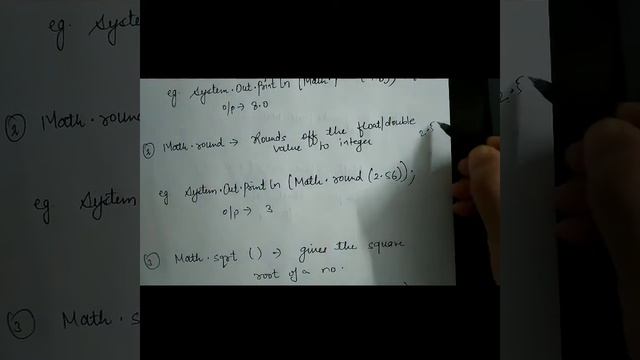 eg. System.Out.println [Math.
o/p → 8.0
② Math.round → Rounds off the float/double
value to integer
2.5
eg System.Out.println [Math.round (2.56));
o/p → 3
③ Math.sqrt () → gives the square
root of a no.